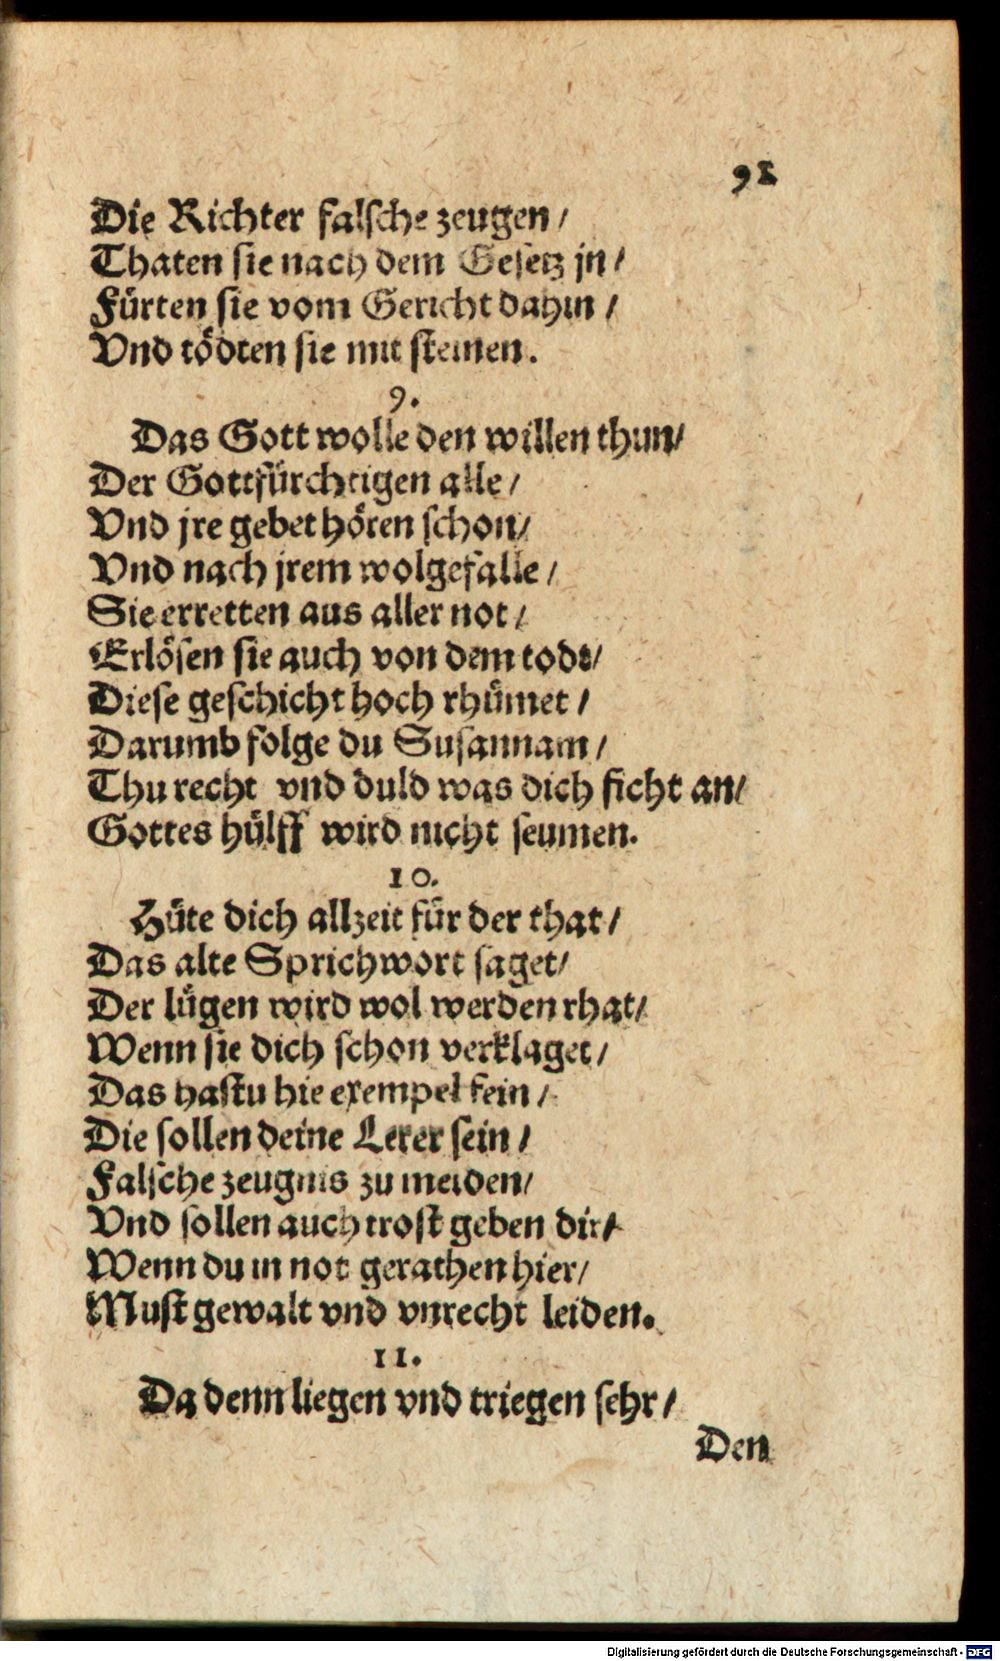 91
Die Richter falsche zeugen /
Thaten sie nach dem Gesetz jn /
Fürten sie vom Gericht dahin /
Vnd tödten sie mit steinen.
9.
Das Gott wolle den willen thun /
Der Gottfürchtigen alle /
Vnd jre gebet hören schon /
Vnd nach jrem wolgefalle /
Sie erretten aus aller not /
Erlösen sie auch von dem todt /
Diese geschicht hoch rhümet /
Darumb folge du Susannam /
Thu recht vnd duld was dich ficht an /
Gottes hülff wird nicht seumen.
10.
Hüte dich allzeit für der that /
Das alte Sprichwort saget /
Der lügen wird wol werden rhat /
Wenn sie dich schon verklaget /
Das hastu hie exempel fein /
Die sollen deine Lerer sein /
Falsche zeugnis zu meiden /
Vnd sollen auch trost geben dir /
Wenn du in not gerathen hier /
Must gewalt vnd vnrecht leiden.
11.
Da denn liegen vnd triegen sehr /
Den
Digitalisierung gefördert durch die Deutsche Forschungsgemeinschaft - DFG